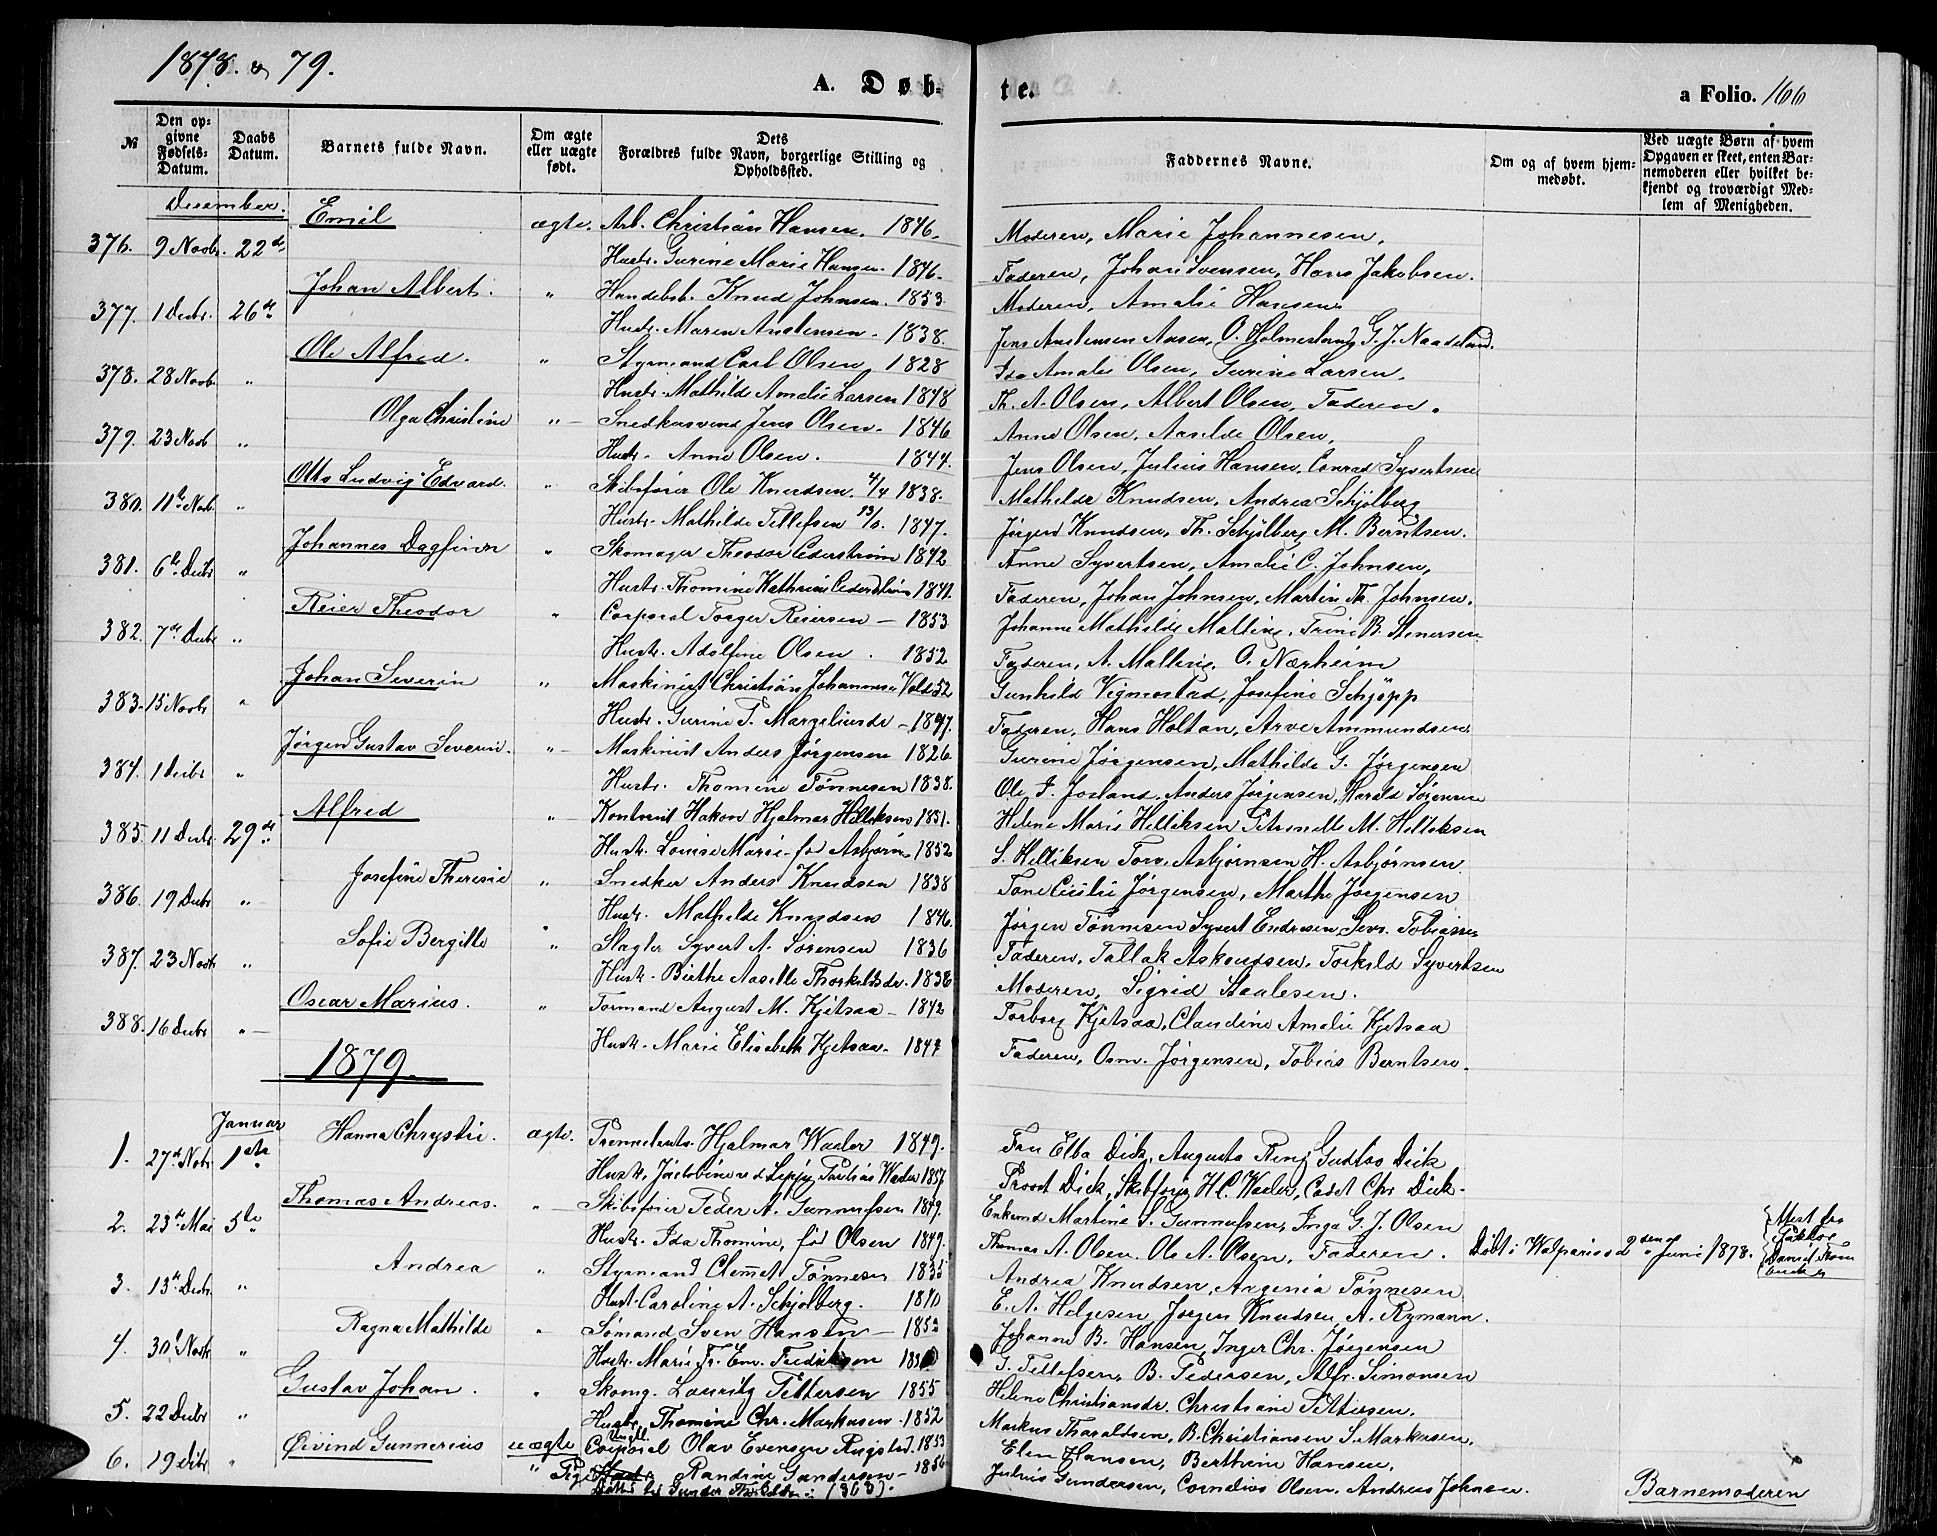 1878. & 79.
A. Døb-
te.
a Folio. 166
№
Den op-
givne
Fødsels-
Datum.
Daabs
Datum.
Barnets fulde Navn.
Om ægte
eller uægte
født.
Dets
Forældres fulde Navn, borgerlige Stilling og
Opholdssted.
Faddernes Navne.
Om og af hvem hjem-
medøbt.
Ved uægte Børn af hvem
Opgaven er skeet, enten Bar-
nemoderen eller hvilket be-
kjendt og troværdigt Med-
lem af Menigheden.
December.
376. 9 Novbr. 22de Emil ægte. Arb. Christian Hansen. 1846.
Hustr. Gurine Marie Hansen. 1846.
Moderen, Marie Johannesen,
Faderen, Johan Svensen, Hans Jakobsen.
377. 1 Decbr. 26de Johan Albert. " Handelsb. Knud Johnsen. 1853
Hustr. Maren Anstensen. 1838.
Moderen, Amalie Hansen
Jens Anstensen Aasen, O. Holmestrand, G. J. Naadeland.
378. 28 Novb. " Ole Alfred. " Styrmand Carl Olsen 1828
Hustr. Mathilde Amalie Larsen 1848
Ida Amalie Olsen, Gurine Larsen,
Th. A. Olsen, Albert Olsen, Faderen.
379. 23 Novb " Olga Christine " Snedkersvend Jens Olsen. 1846
Hustr. Anne Olsen. 1844.
Anne Olsen, Aasilde Olsen,
Jens Olsen, Julius Hansen, Conrad Syvertsen
380. 11te Novb. " Otto Ludvig Edvard. " Skibsfører Ole Knudsen. 4/4 1838.
Hustr. Mathilde Tellefsen 1847.
Mathilde Knudsen, Andrea Schjölberg
Jørgen Knudsen, Th. Schjölberg M. Berntsen.
381. 6te Decbr " Johannes Dagfinn " Skomager Theodor Cederstrøm 1842
Hustr. Thomine Kathrine Cederstrøm 1841.
Anne Syvertsen, Amalie C. Johnsen,
Faderen, Johan Johnsen, Martin Th. Johnsen.
382. 7de Decbr " Reier Theodor " Corporal Torger Reiersen - 1853
Hustr. Adolfine Olsen. 1852
Johanne Mathilde Malling, Trine B. Stenersen
Faderen, A. Malling, O. Nærheim
383. 15 Novbr " Johan Severin " Maskinist Christian Johannesen Vold 52
Hustr. Gurine T. - 1847.
Gunhild Vigmostad, Josefine Schjøpp
Faderen, Hans Holtan, Arve Ammundsen,
384. 1 Decbr " Jørgen Gustav Severin. " Maskinist Anders Jørgensen 1826
Hustr. Thomine Tønnesen 1838.
Gurine Jørgensen, Mathilde G. Jørgensen
Ole T. Josland. Anders Jørgensen, Harald Sørensen
385. 11 Decbr. 29de Alfred " Kontorist Hakon Hjalmar Helliksen 1851.
Hustr. Louise Marie fød Asbjørn. 1852
Helene Marie Helliksen Petronelle M. Helleksen
S. Helliksen Torv. Asbjørnsen H. Asbjørnsen.
386. 19 Decbr " Josefine Theresie " Snedker Anders Knudsen 1838
Hustr. Mathilde Knudsen 1846
Tone Cecilie Jørgensen, Marthe Jørgensen
Jørgen Tønnesen Syvert Endresen, Sevr. Tobiasen
387. 23 Novbr " Sofie Bergitte " Slagter Syvert A. Sørensen 1836
Hustr. Birthe Aasille Thorkildsdr. 1838
Faderen, Tallak Askendsen, Torkild Syvertsen
Moderen, Sigrid Staalesen.
388. 16 Decbr " Oscar Marius. " Tormand August M. Kjetsaa - 1842
Hustr. Marie Elisabeth Kjetsaa. 1847
Torborg Kjetsaa, Claudine Amalie Kjetsaa
Faderen, Osm. Jørgensen, Tobias Berntsen.
1879.
Januar
1. 27de Novbr 1ste Hanna Chrystie. ægte. Hjalmar Waaler 1849.
Hustr. Waaler 1857
Fru Elba Dick, Augusta Ring Gustav Dick
Provst Dick, Skibsfører H.C. Waaler, Cadet Chr Dick.
2. 23de Mai 5te Thomas Andreas. " Skibsfører Peder A. Gunnufsen 1849.
Hustr. Ida Thomine, fød Olsen 1849.
Enkemd Martine S. Gunnufsen, Inga G. J. Olsen
Thomas A. Olsen. Ole A. Olsen, Faderen. Døbt i Walpariso 2den Juni 1878.
3. 13de Decbr. " Andrea " Styrmand Clemet Tønnesen 1835
Hust. Caroline A. Schjølberg. 1840
Andrea Knudsen, Axgenia Tønnesen
E. A. Helgesen, Jørgen Knudsen, A. Rymann.
4. 30te Novbr " Ragna Mathilde " Sømand Sven Hansen - 1853
Hustr. Marie Fr. Em. Fredriksen
Johanne B. Hansen, Inger Chr. Jørgensen
G. Tellefsen, B. Pedersen, Alfr. Simonsen
5. 22 Decbr " Gustav Johan. " Skomg. Lauritz Pettersen 1855
Hustr. Thomine Chr. Markusen. 1852
Helene Christiansdr. Christiane Pettersen.
Markus Tharaldsen, B. Christiansen S. Markusen,
6. 19 Decbr " Øivind Gunnerius uægte Corporal Olav Evensen Rugstad. 1853
" Pige Randine Gundersen - 1856
Elen Hansen, Berthine Hansen,
Julius Gundersen, Cornelius Olsen, Andreas Johnsen. Barnemoderen